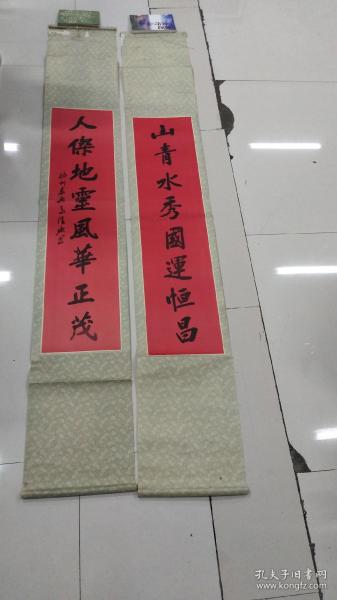 山青水秀國運恒昌
人傑地靈風華正茂
孔夫子旧书网
www.kongfz.com